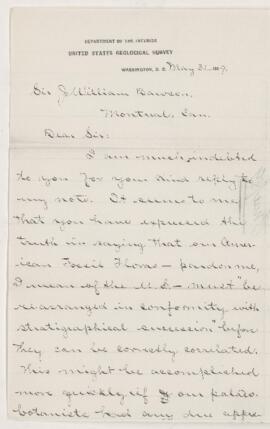 DEPARTMENT OF THE INTERIOR
UNITED STATES GEOLOGICAL SURVEY
WASHINGTON, D. C. May 31 1889.
Sir J William Dawson.
Montreal, Can.
Dear Sir:
I am much indebted
to you for your kind reply to
my note. It seems to me
that you have expressed the
truth in saying that our Amer-
ican Fossil Floras – pardon me,
I mean of the U.S. – must "be
rearranged in conformity with
stratigraphical succession" before
they can be correctly correlated.
This might be accomplished
more quickly if our palaeo-
botanists had any due appre-